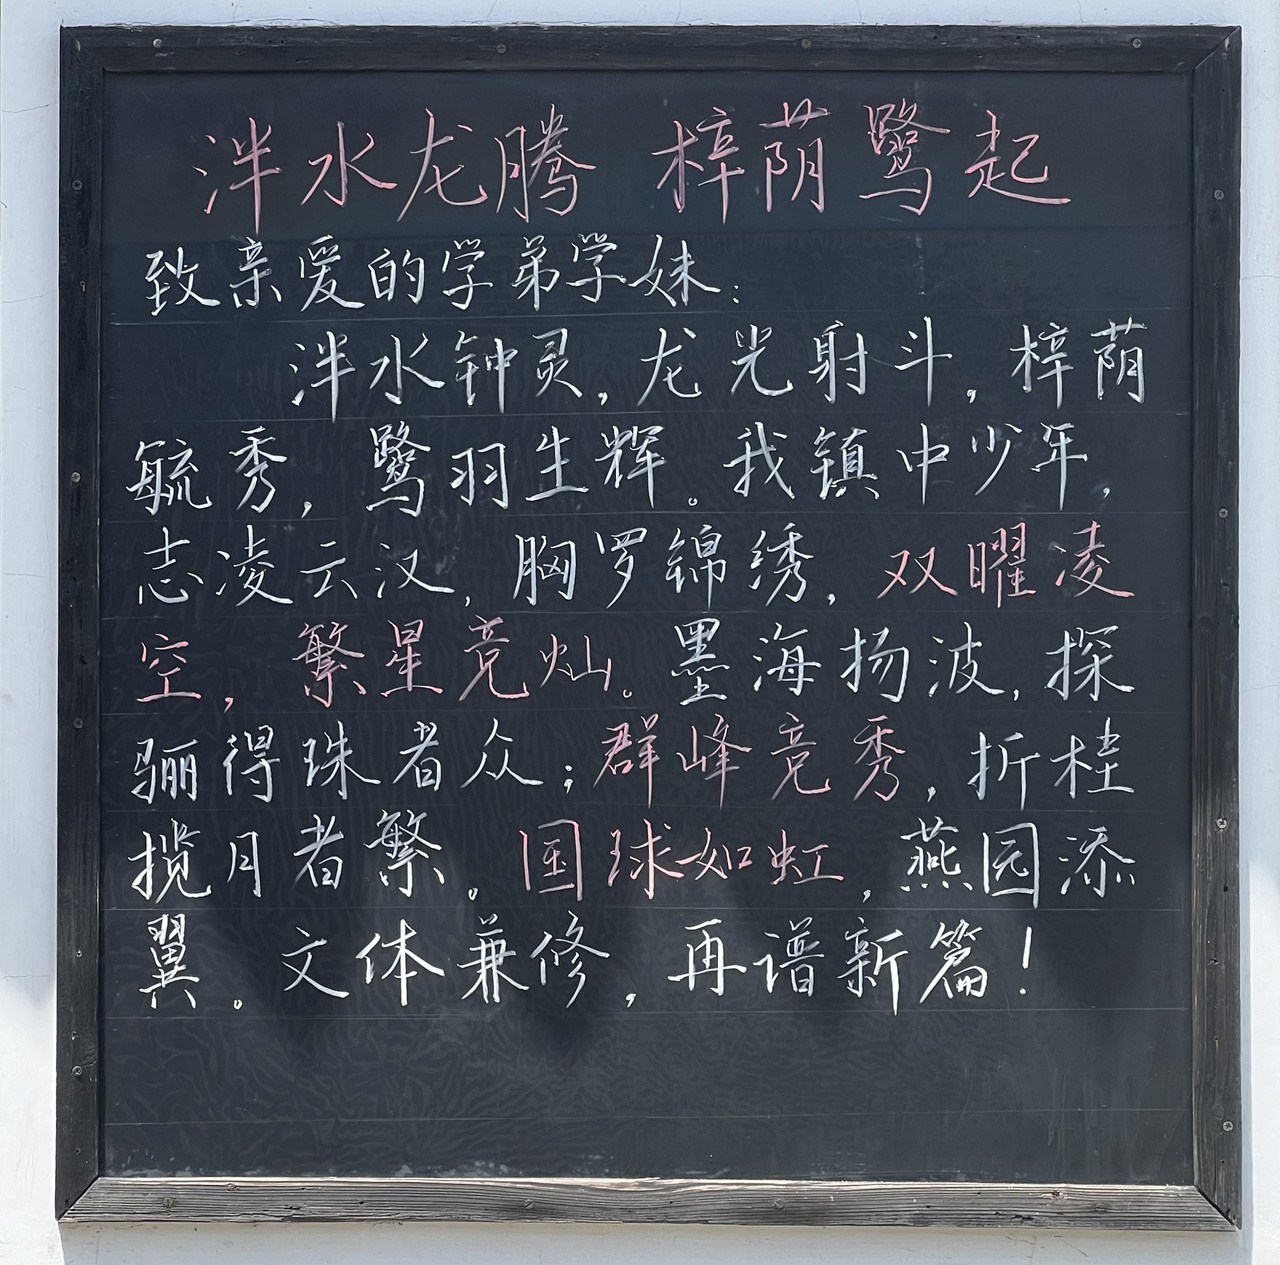 泮水龙腾 梓荫鹭起
致亲爱的学弟学妹：
泮水钟灵，龙光射斗，梓荫
毓秀，鹭羽生辉。我镇中少年，
志凌云汉，胸罗锦绣，双曜凌
空，繁星竞灿。墨海扬波，探
骊得珠者众；群峰竞秀，折桂
揽月者繁。国球如虹，燕园添
翼。文体兼修，再谱新篇！